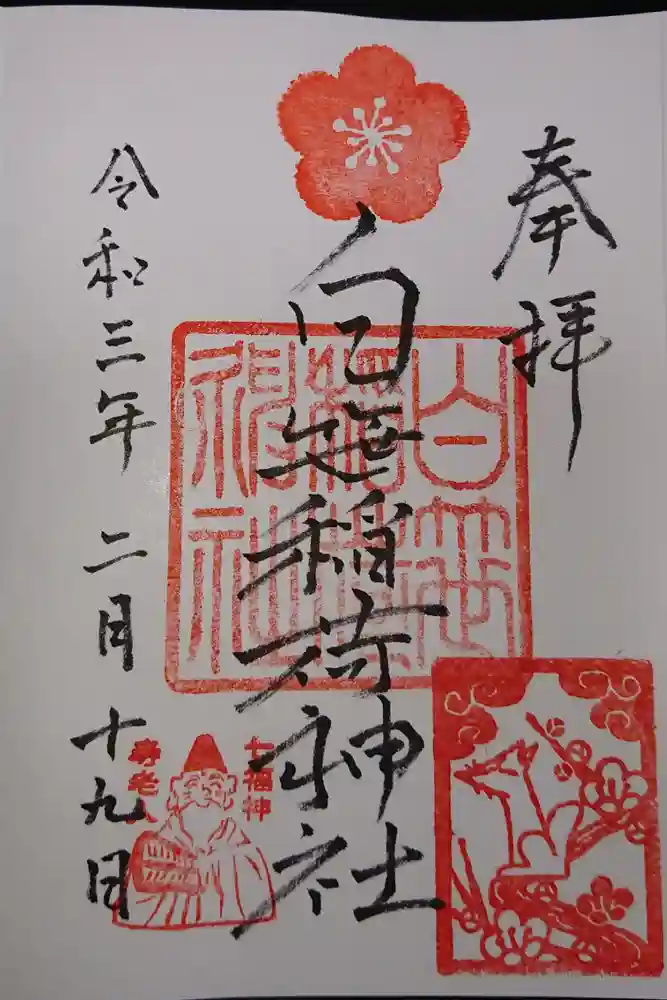 奉拝
白笹稲荷神社
白笹
稲荷
神社
令和三年 二月 十九日
七福神
寿老人